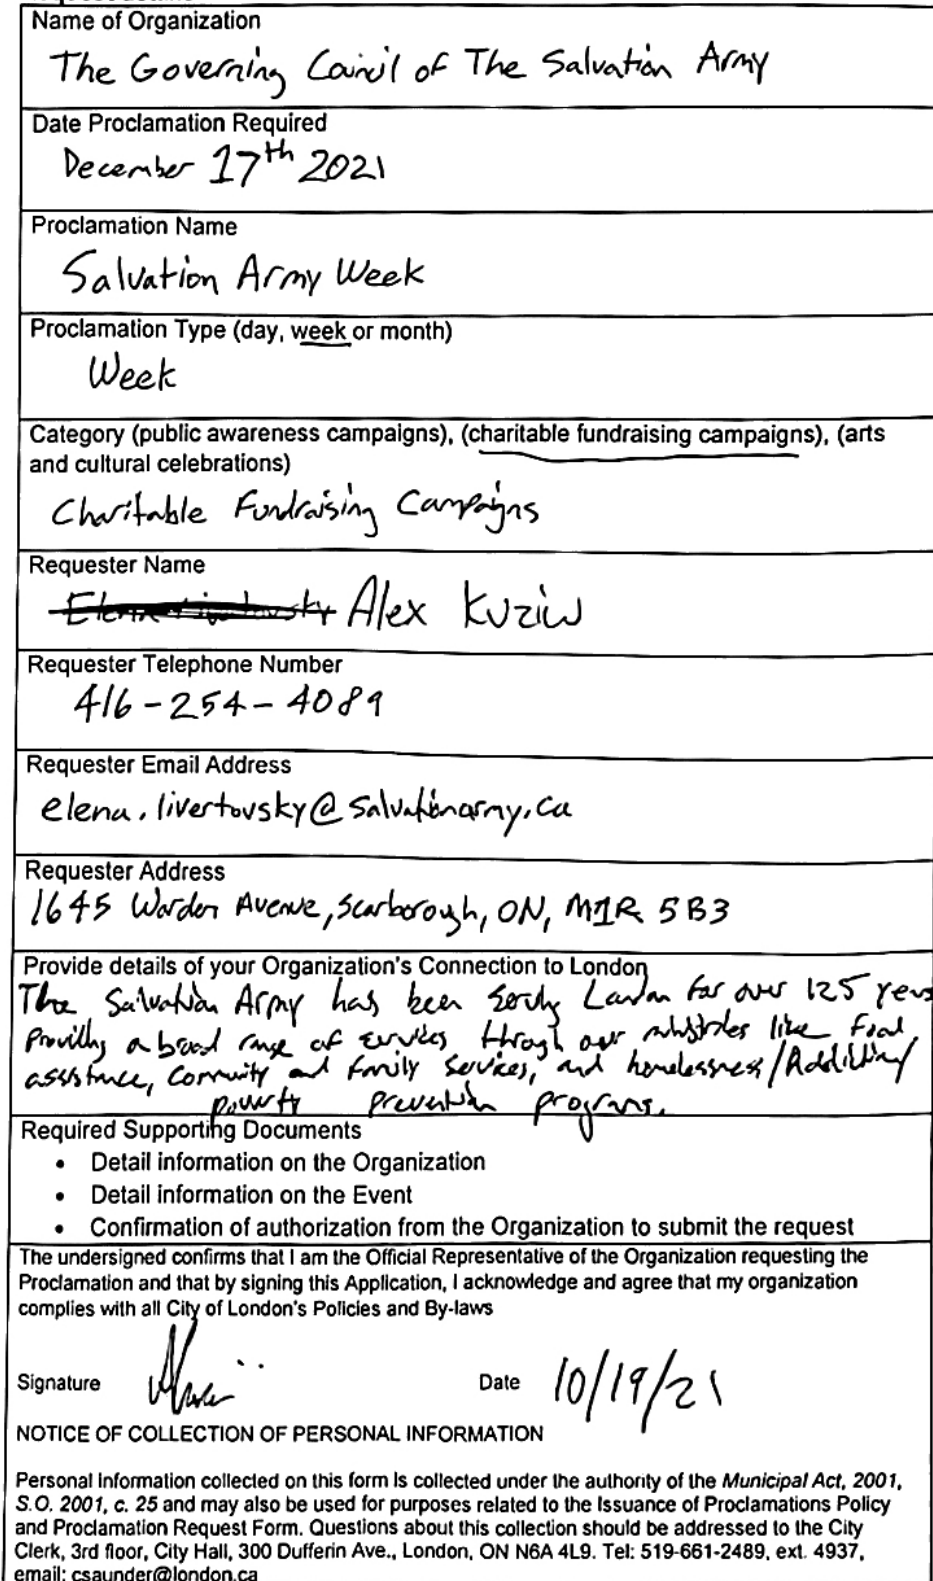 Name of Organization
The Governing Council of The Salvation Army
Date Proclamation Required
December 17th 2021
Proclamation Name
Salvation Army Week
Proclamation Type (day, week or month)
Week
Category (public awareness campaigns), (charitable fundraising campaigns), (arts
and cultural celebrations)
Charitable Fundraising Campaigns
Requester Name
Alex Kuziw
Requester Telephone Number
416-254-4089
Requester Email Address
elena.livertovsky@salvationarmy.ca
Requester Address
1645 Warden Avenue, Scarborough, ON, M1R 5B3
Provide details of your Organization's Connection to London
The Salvation Army has been serving London for over 125 years
Providing a broad range of services through our ministries like food
assistance, Community and Family Services, and homelessness/Addiction/
poverty prevention programs.
Required Supporting Documents
• Detail information on the Organization
• Detail information on the Event
• Confirmation of authorization from the Organization to submit the request
The undersigned confirms that I am the Official Representative of the Organization requesting the
Proclamation and that by signing this Application, I acknowledge and agree that my organization
complies with all City of London's Policies and By-laws
Signature Date 10/19/21
NOTICE OF COLLECTION OF PERSONAL INFORMATION
Personal Information collected on this form is collected under the authority of the Municipal Act, 2001,
S.O. 2001, c. 25 and may also be used for purposes related to the Issuance of Proclamations Policy
and Proclamation Request Form. Questions about this collection should be addressed to the City
Clerk, 3rd floor, City Hall, 300 Dufferin Ave., London, ON N6A 4L9. Tel: 519-661-2489, ext. 4937,
email: csaunder@london.ca